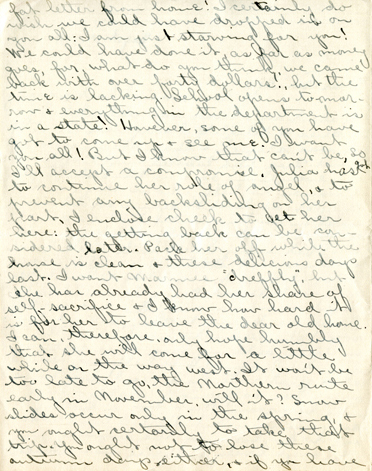 but better from home! I certainly do
wish we could have dropped in on
you all: I am just starving for you!
We could have done it, as far as money
goes, for, what do you think, we came
back with over forty dollars!, but the
time is lacking. School opens to-mor-
row & everything in the department is
in a state! However, some of you have
got to come up & see me. I want
you all! But I know that can't be, so
I'll accept a compromise. Julia has got
to continue her rôle of angel, & to
prevent any backsliding on her
part, I enclose check to get her
here: the getting back can be con-
sidered later. Pack her off while the
house is clean & these delicious days
last. I want Mamma "dreffly," but
she has already had her share of
self-sacrifice & I know how hard it
is for her to leave the dear old home.
I can, therefore, only hope humbly
that she will come for a little
while on the way west. It won't be
too late to go, the Northern route
early in November, will it? Snow
slides occur only in the spring, &
you ought certainly to take that
trip. You ought not to lose these
autumn days, either, & if you have